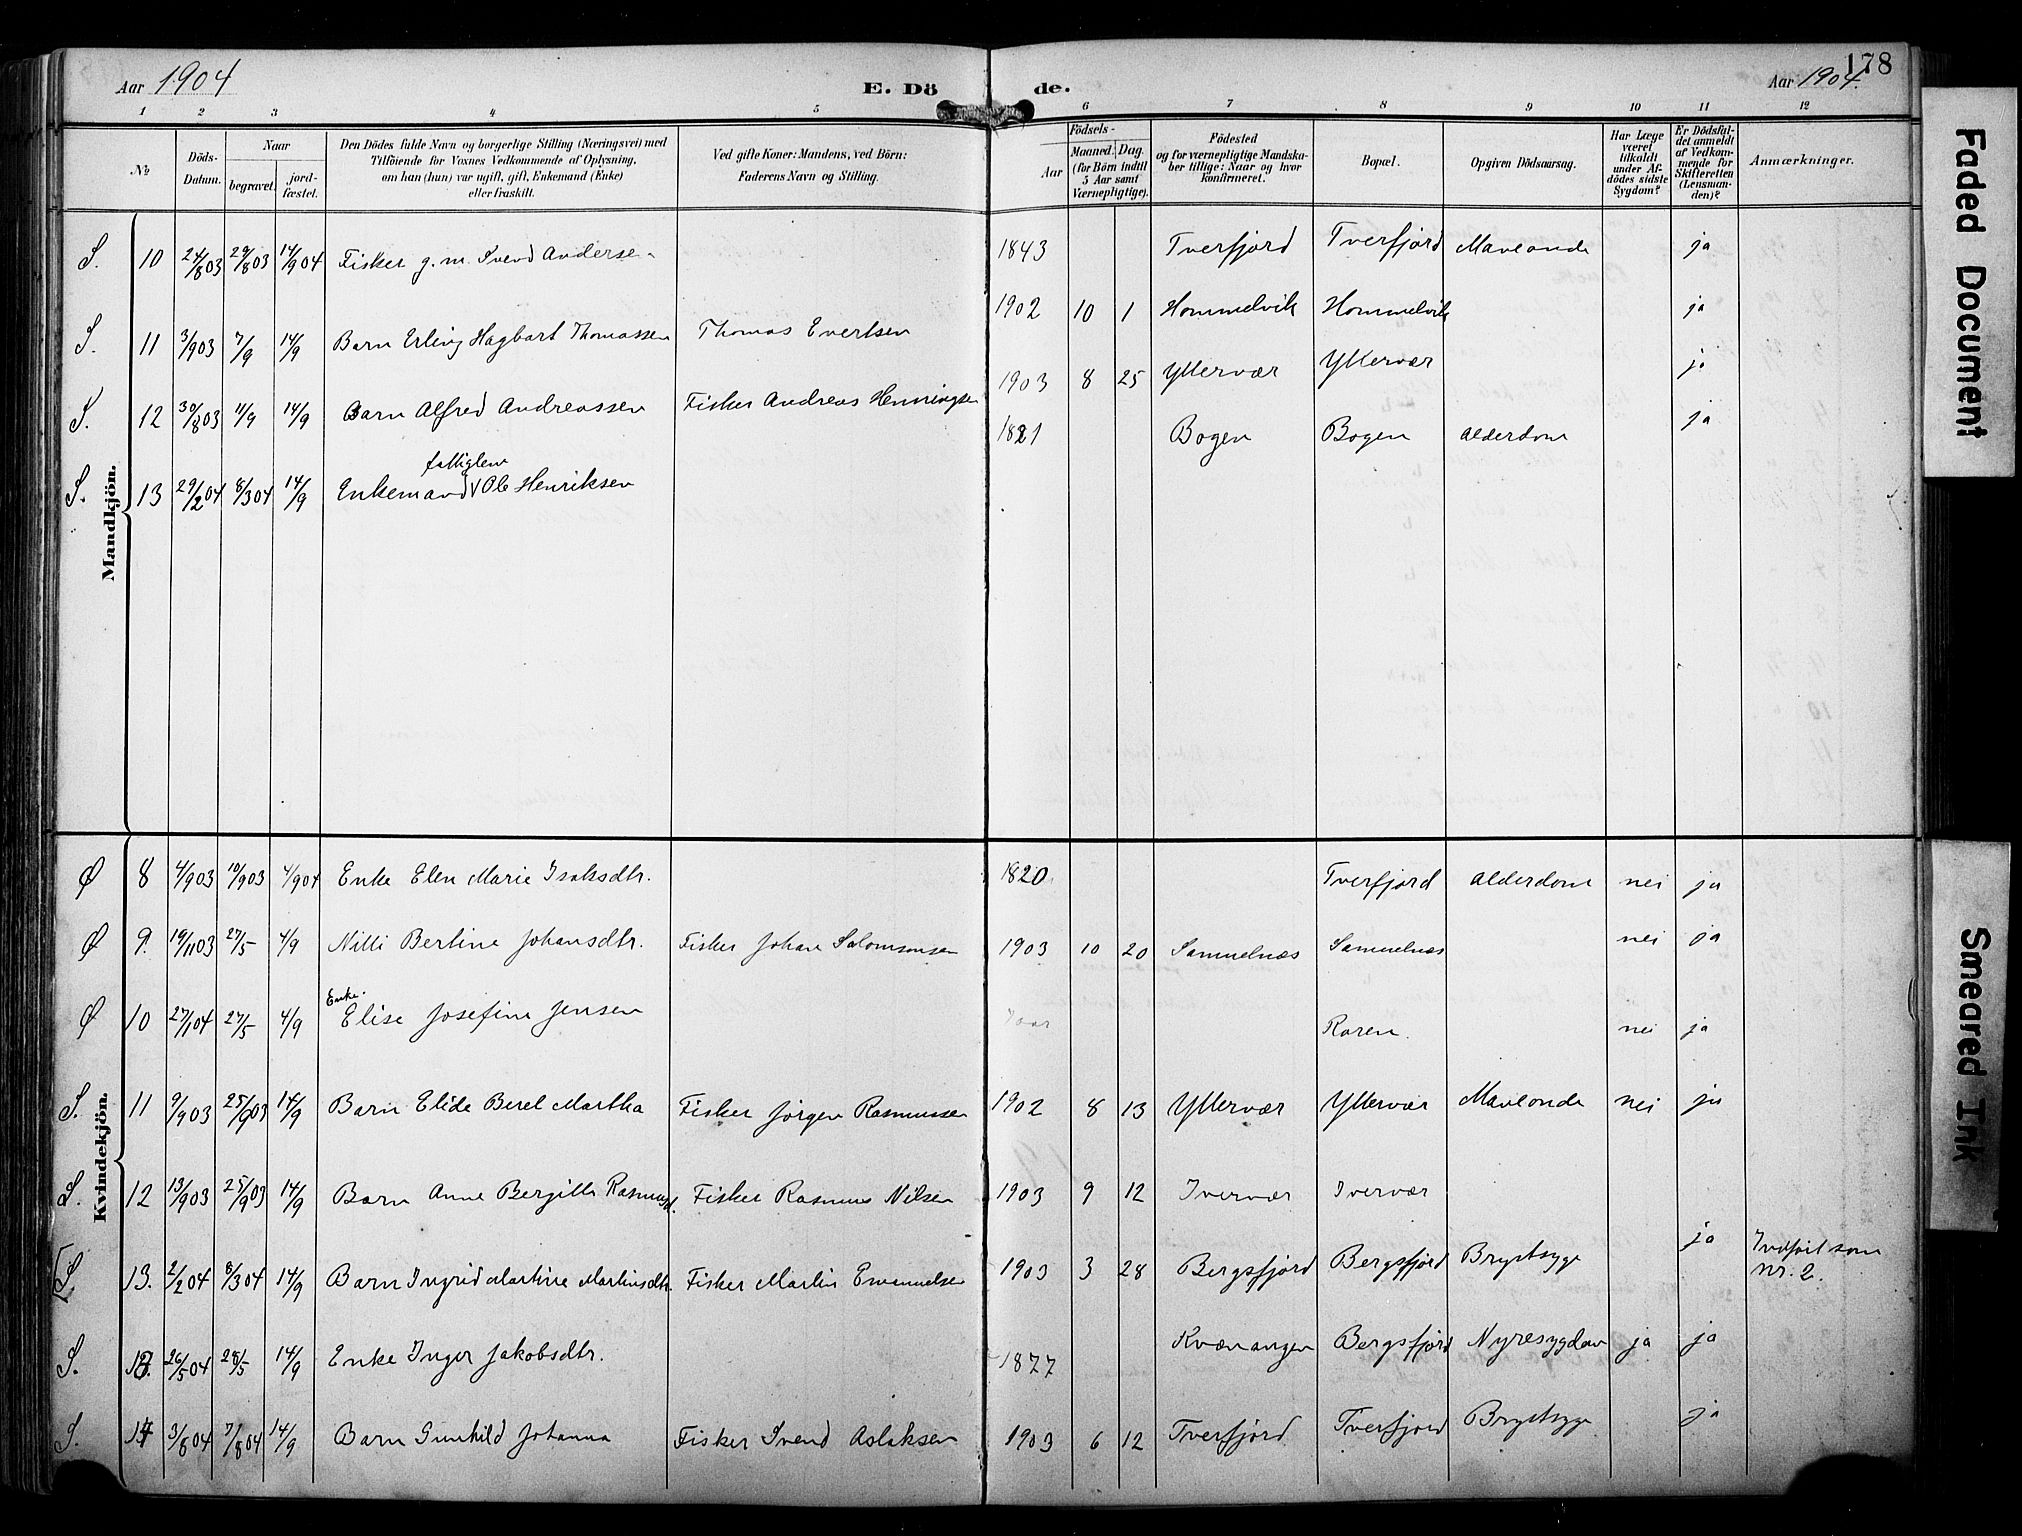 Aar 1904
E. Dö
de.
Aar 1904.
178
1 2 3 4 5 6 7 8 9 10 11 12
№
Döds-Datum.
Naar
begravet.
jordfæstet.
Den Dödes fulde Navn og borgerlige Stilling (Næringsvei) med
Tilföiende for Voxnes Vedkommende af Oplysning,
om han (hun) var ugift, gift, Enkemand (Enke)
eller fraskilt.
Ved gifte Koner: Mandens, ved Börn:
Faderens Navn og Stilling.
Födsels-
Aar
Maaned. Dag.
(for Börn indtil
5 Aar samt
Værnepligtige).
Födested
og for værnepligtige Mandska-
ber tillige: Naar og hvor
konfirmeret.
Bopæl.
Opgiven Dödsaarsag.
Har Læge
været
tilkaldt
under Af-
dödes sidste
Sygdom?
Er Dödsfal-
det anmeldt
af Vedkom-
mende for
Skifteretten
(Lensman-
den)?
Anmærkninger.
Mandkjön.
S. 10 24/8 03 29/8 03 14/9 04 Fisker g. m. Svend Andersen 1843 Tverfjord Tverfjord Maveonde ja
S. 11 3/9 03 7/9 14/9 Barn Erling Hagbart Thomassen Thomas Evertsen 1902 10 1 Hommelvik Hommelvik ja
S. 12 30/8 03 11/9 14/9 Barn Alfred Andreassen Fisker Andreas Henningsen 1903 8 25 Yttervær Yttervær ja
fattiglem
S. 13 29/2 04 8/3 04 14/9 Enkemand √ Ole Henriksen 1821 Bogen Bogen Alderdom ja
Kvindekjön.
Ø 8 4/9 03 10/9 03 4/9 04 Enke Elen Marie Isaksdtr. 1820 Tverfjord Alderdom nei ja
Ø 9. 19/11 03 27/5 4/9 Nilli Bertine Johansdtr. Fisker Johan Salomonsen 1903 10 20 Samuelnæs Samuelnæs nei ja
Enke.
Ø 10 27/1 04 27/5 4/9 Elise Josefine Jensen Raren. nei ja
S. 11 9/9 03 25/9 03 14/9 Barn Elide Berel Martha Fisker Jørgen Rasmussen 1902 8 13 Yttervær Yttervær Maveonde nei ja
S. 12 13/9 03 25/9 03 14/9 Barn Anne Bergitte Rasmusd. Fisker Rasmus Nilsen 1903 9 12 Ivervær Ivervær
[S. 13. 2/2 04 8/3 04 14/9 Barn Ingrid Martine Martinsdtr. Fisker Martin Emanuelsen 1903 3 28 Bergsfjord Bergsfjord Brystsyge ja Indført som
nr. 2.
S. 26/5 04 28/5 14/9 Enke Inger Jakobsdtr. 1877 Kvænangen Bergsfjord Nyresygdom ja ja
S. 14 3/8 04 7/8 04 14/9 Barn Gunhild Johanna Fisker Svend Aslaksen 1903 6 12 Tverfjord Tverfjord Brystsyge ja
Faded Document
Smeared Ink